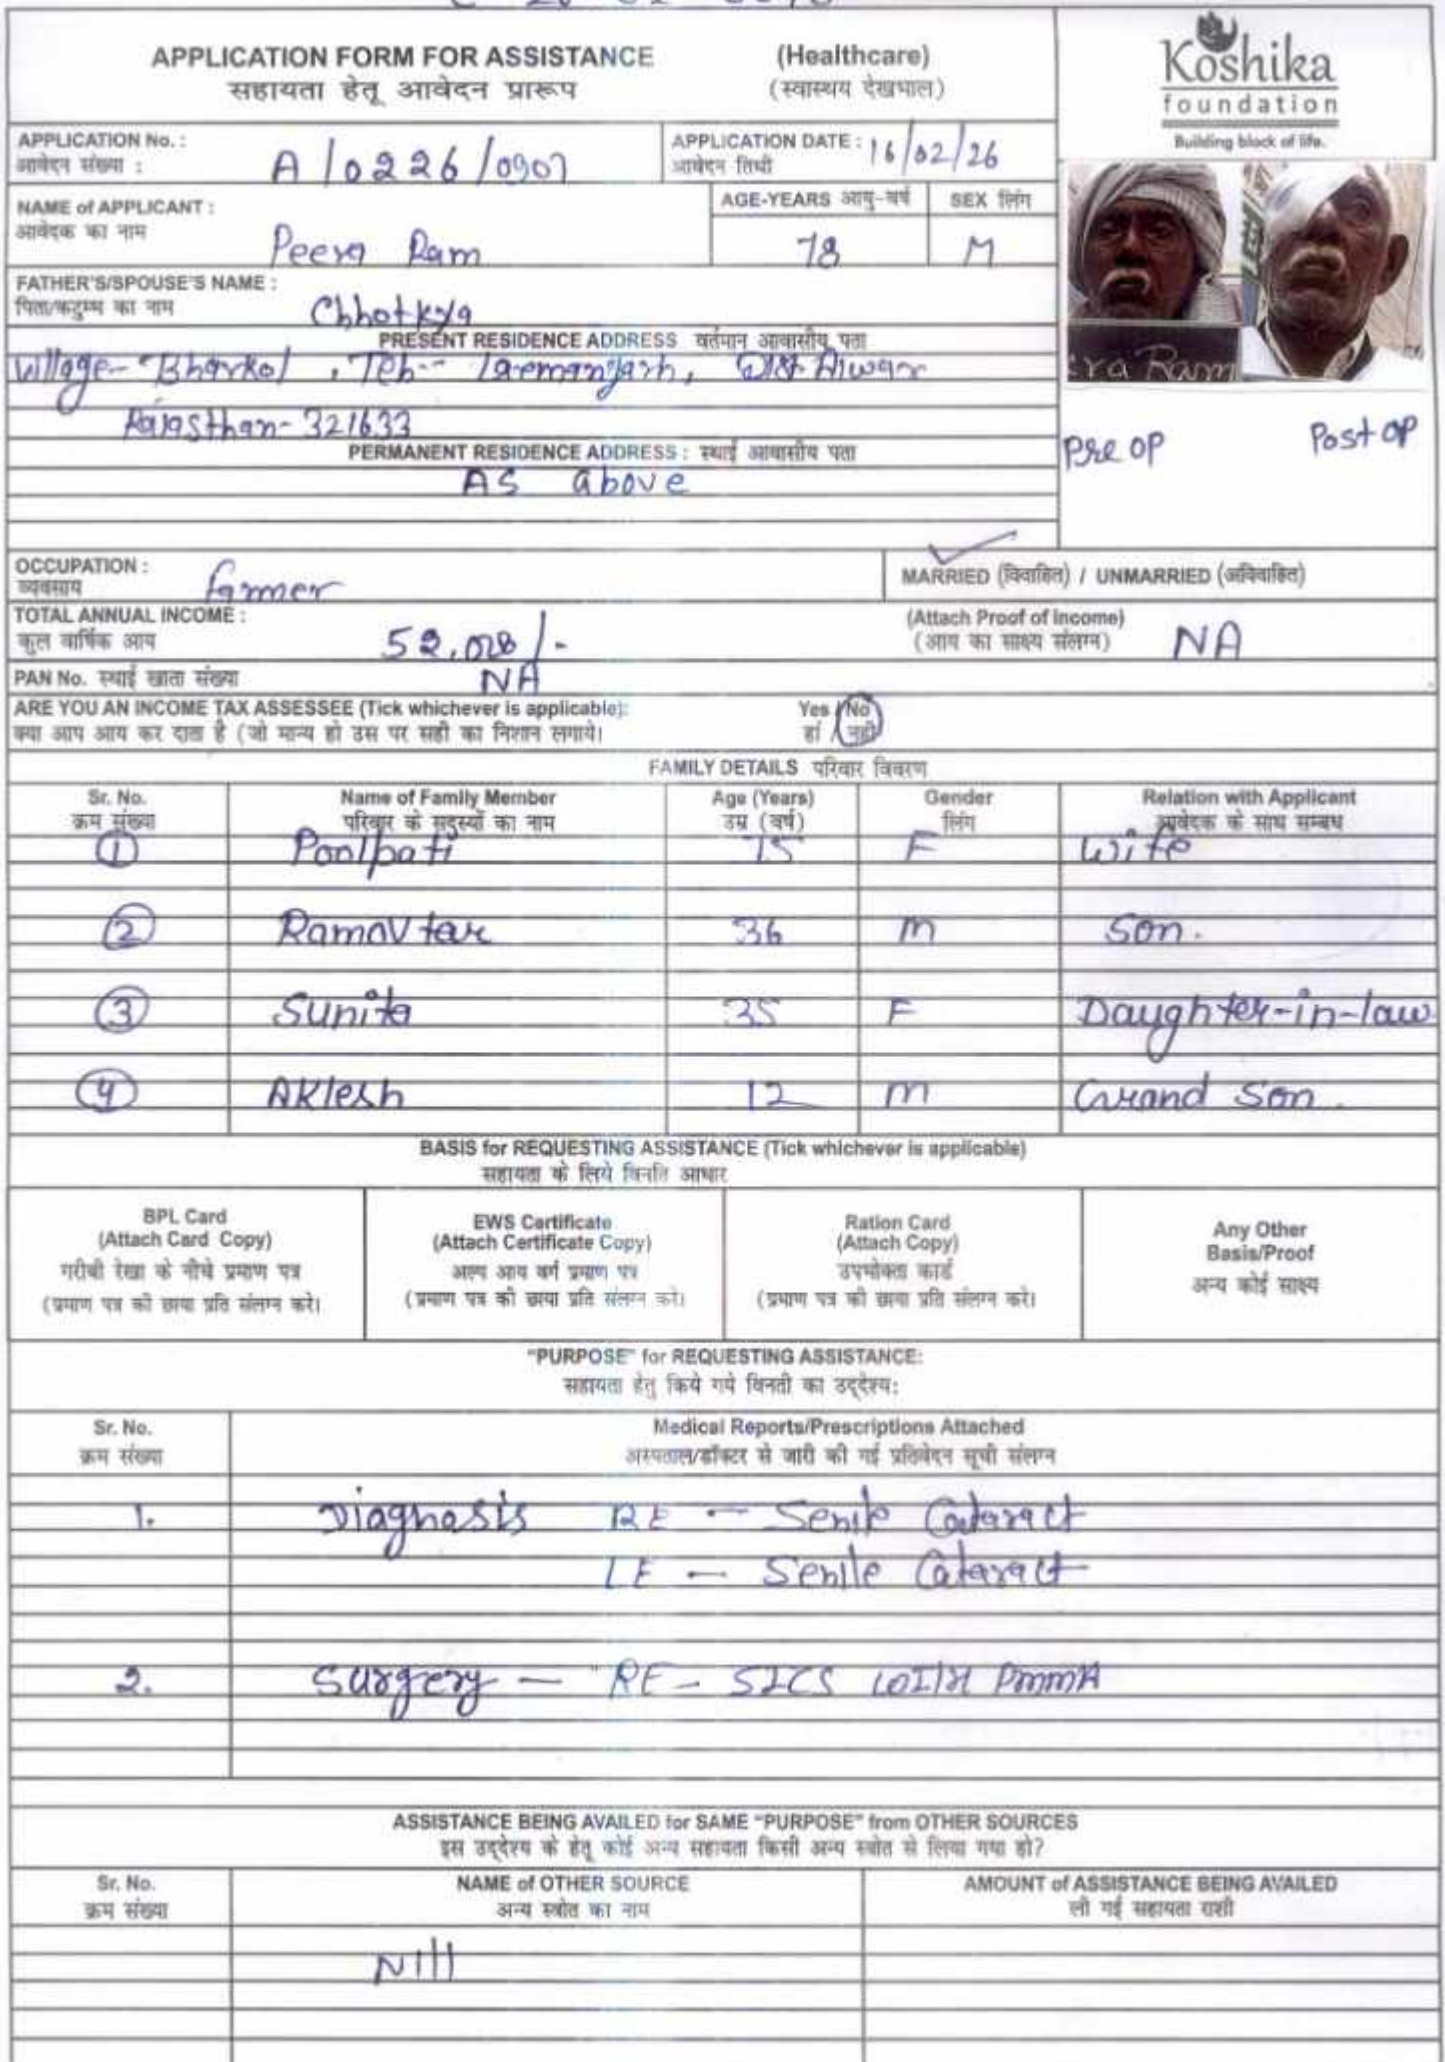 APPLICATION FORM FOR ASSISTANCE (Healthcare)
सहायता हेतू आवेदन प्रारूप (स्वास्थय देखभाल)
Koshika
foundation
Building block of life.
APPLICATION No. :
आवेदन संख्या : A/0226/0907
APPLICATION DATE : 16/02/26
आवेदन तिथी
NAME of APPLICANT :
आवेदक का नाम Peera Ram
AGE-YEARS आयु-वर्ष SEX लिंग
78 M
FATHER'S/SPOUSE'S NAME :
पिता/कटुम्ब का नाम Chhotkya
PRESENT RESIDENCE ADDRESS वर्तमान आवासीय पता
Village- Bharkol, Teh-- Dist Alwar
Rajasthan-321633
PERMANENT RESIDENCE ADDRESS : स्थाई आवासीय पता
AS above
ra Ram
Pre op Post op
OCCUPATION :
व्यवसाय farmer
MARRIED (विवाहित) / UNMARRIED (अविवाहित)
TOTAL ANNUAL INCOME :
कुल वार्षिक आय 52,028/-
(Attach Proof of Income)
(आय का साक्ष्य संलग्न) NA
PAN No. स्थाई खाता संख्या NA
ARE YOU AN INCOME TAX ASSESSEE (Tick whichever is applicable): Yes / No
क्या आप आय कर दाता है (जो मान्य हो उस पर सही का निशान लगाये। हां / नही
FAMILY DETAILS परिवार विवरण
Sr. No. Name of Family Member Age (Years) Gender Relation with Applicant
क्रम संख्या परिवार के सदुस्यों का नाम उम्र (वर्ष) लिंग आवेदक के साथ सम्बध
1 Poolpati 75 F Wife
2 Ramavtar 36 M Son.
3 Sunita 35 F Daughter-in-law
4 Aklesh 12 M Grand Son.
BASIS for REQUESTING ASSISTANCE (Tick whichever is applicable)
सहायता के लिये विनति आधार
BPL Card
(Attach Card Copy)
गरीबी रेखा के नीचे प्रमाण पत्र
(प्रमाण पत्र की छाया प्रति संलग्न करे।
EWS Certificate
(Attach Certificate Copy)
अल्प आय वर्ग प्रमाण पत्र
(प्रमाण पत्र की छाया प्रति संलग्न करे।
Ration Card
(Attach Copy)
उपभोक्ता कार्ड
(प्रमाण पत्र की छाया प्रति संलग्न करे।
Any Other
Basis/Proof
अन्य कोई साक्ष्य
"PURPOSE" for REQUESTING ASSISTANCE:
सहायता हेतु किये गये विनती का उद्देश्य:
Sr. No. Medical Reports/Prescriptions Attached
क्रम संख्या अस्पताल/डॉक्टर से जारी की गई प्रतिवेदन सूची संलग्न
1. Diagnosis RE - Senile Cataract
LE - Senile Cataract
2. Surgery - RE - SICS WITH PMMA
ASSISTANCE BEING AVAILED for SAME "PURPOSE" from OTHER SOURCES
इस उद्देश्य के हेतू कोई अन्य सहायता किसी अन्य स्त्रोत से लिया गया हो?
Sr. No. NAME of OTHER SOURCE AMOUNT of ASSISTANCE BEING AVAILED
क्रम संख्या अन्य स्त्रोत का नाम ली गई सहायता राशी
Nill